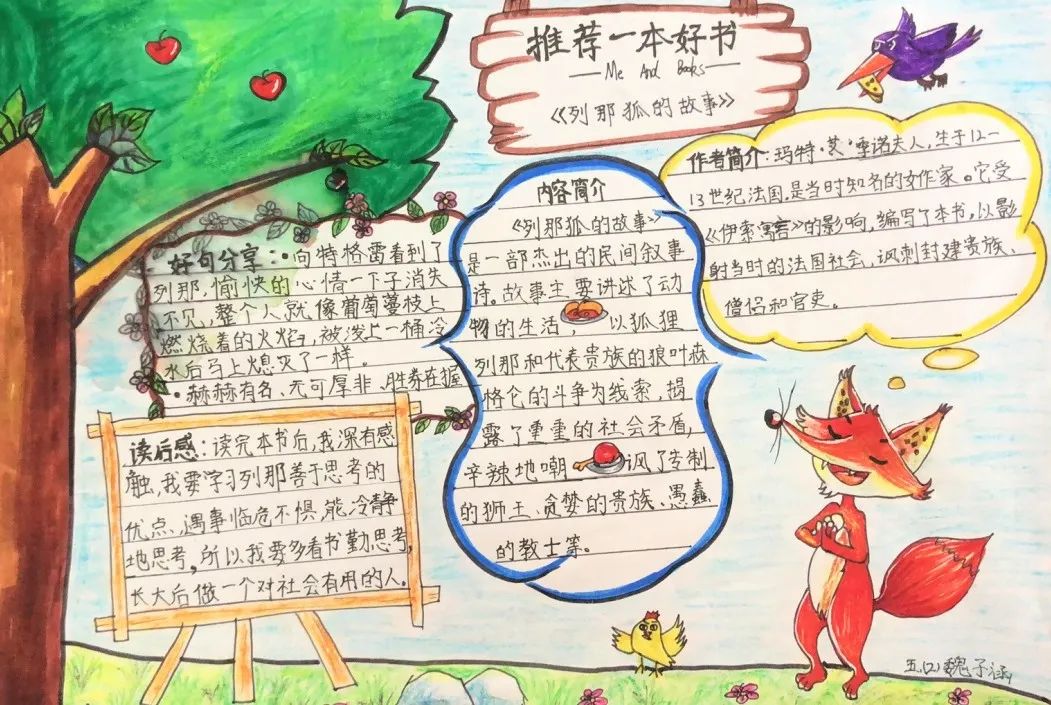 推荐一本好书
—Me And Books—
《列那狐的故事》
作者简介：玛特·艾·季诺夫人，生于12—
13世纪法国，是当时知名的女作家。它受
《伊索寓言》的影响，编写了本书，以影
射当时的法国社会，讽刺封建贵族、
僧侣和官吏。
内容简介
《列那狐的故事》
是一部杰出的民间叙事
诗。故事主要讲述了动
物的生活 以狐狸
列那和代表贵族的狼叶森
格仑的斗争为线索，揭
露了重重的社会矛盾，
辛辣地嘲 讽了专制
的狮王、贪婪的贵族、愚蠢
的教士等。
好句分享：·向特格雷看到了
列那，愉快的心情一下子消失
不见，整个人就像葡萄蔓枝上
燃烧着的火焰，被泼上一桶冷
水后马上熄灭了一样。
·赫赫有名、无可厚非、胜券在握
读后感：读完本书后，我深有感
触，我要学习列那善于思考的
优点、遇事临危不惧，能冷静
地思考。所以我要多看书勤思考，
长大后做一个对社会有用的人。
五（2）魏子涵